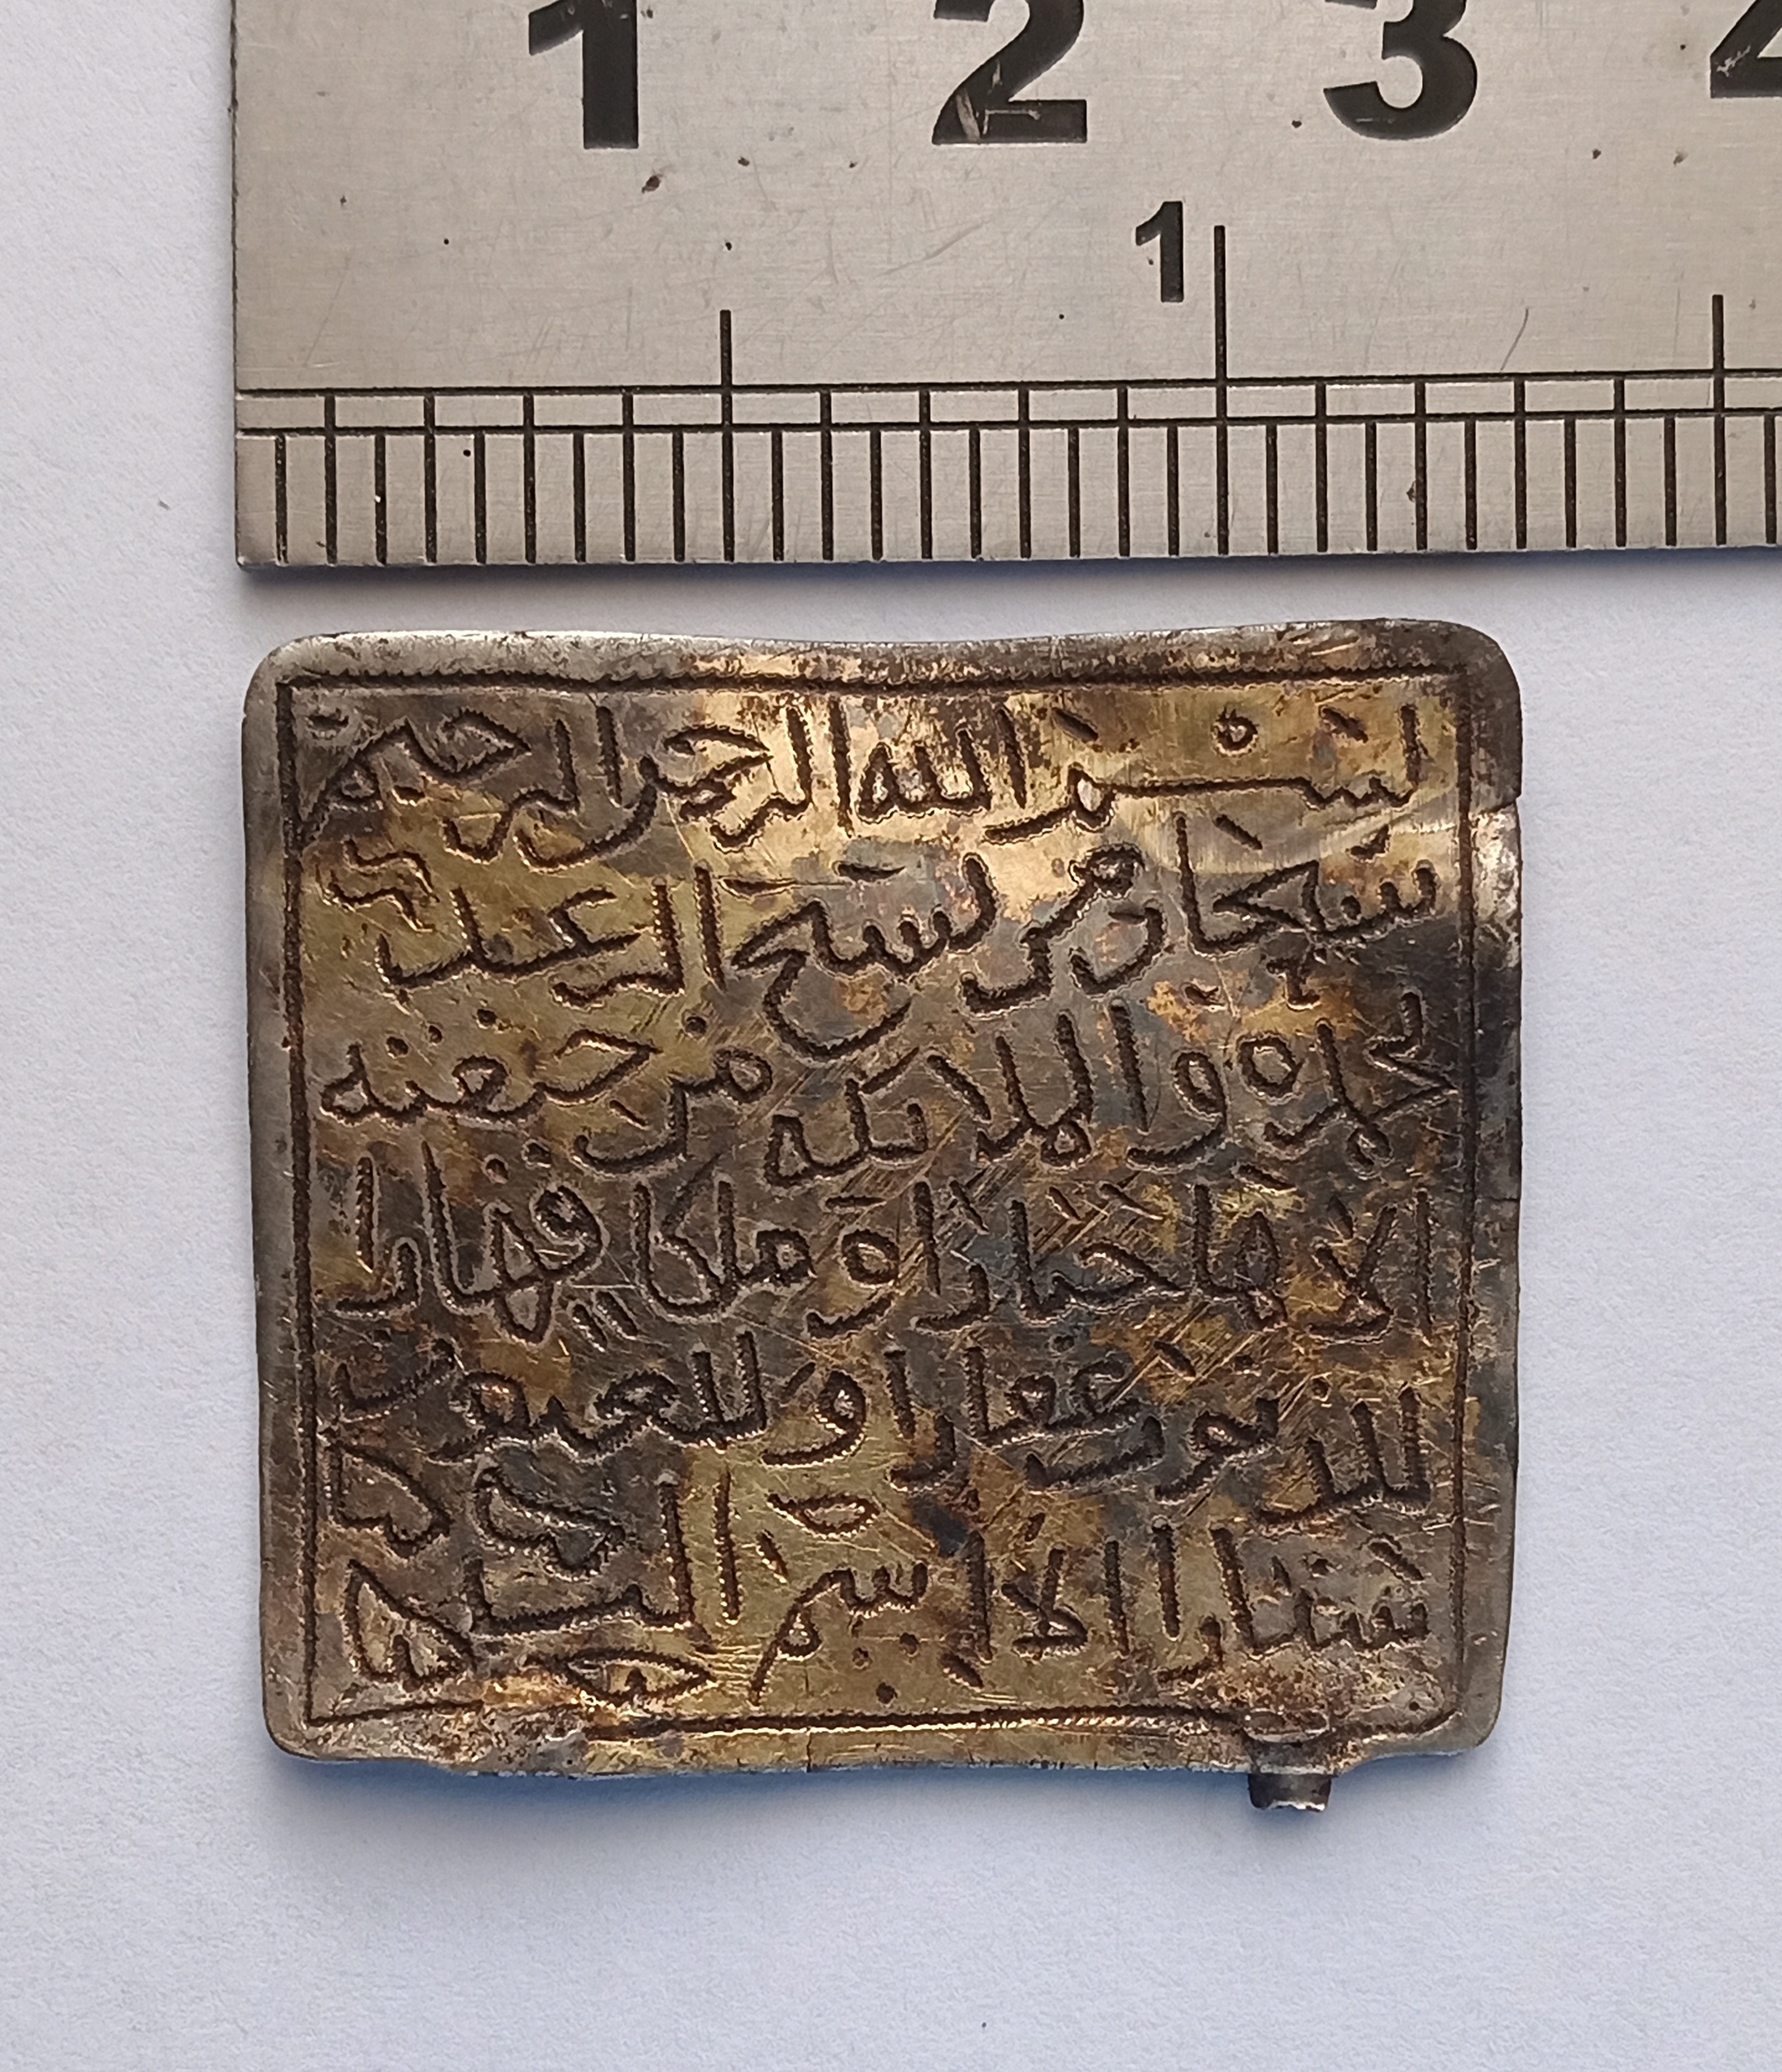 1 2 3 4
1
بسم الله الرحمن الرحيم
سبحان من يسبح الرعد
بحمده والملائكة من خيفته
الا يا جبارا و ملكا قهارا
للذنوب غفارا و للعيوب
ستارا الا اسم